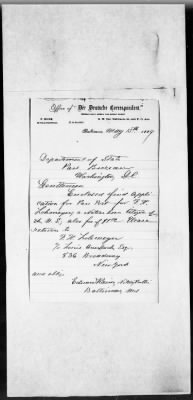 Office of "Der Deutsche Correspondent,"
Baltimore May 15th 1889
Department of State
Pass Bureau
Washington D.C.
Gentlemen
Enclosed find Appli
cation for Pass Port for F. W.
Lohmeyer a Native born Citizen of
th. U.S., also fee of $1.00. Please
return to
F. W. Lohmeyer
Co Louis Esq.
536 Broadway
New York
and oblg.
Edward Notary Public
Baltimore Md